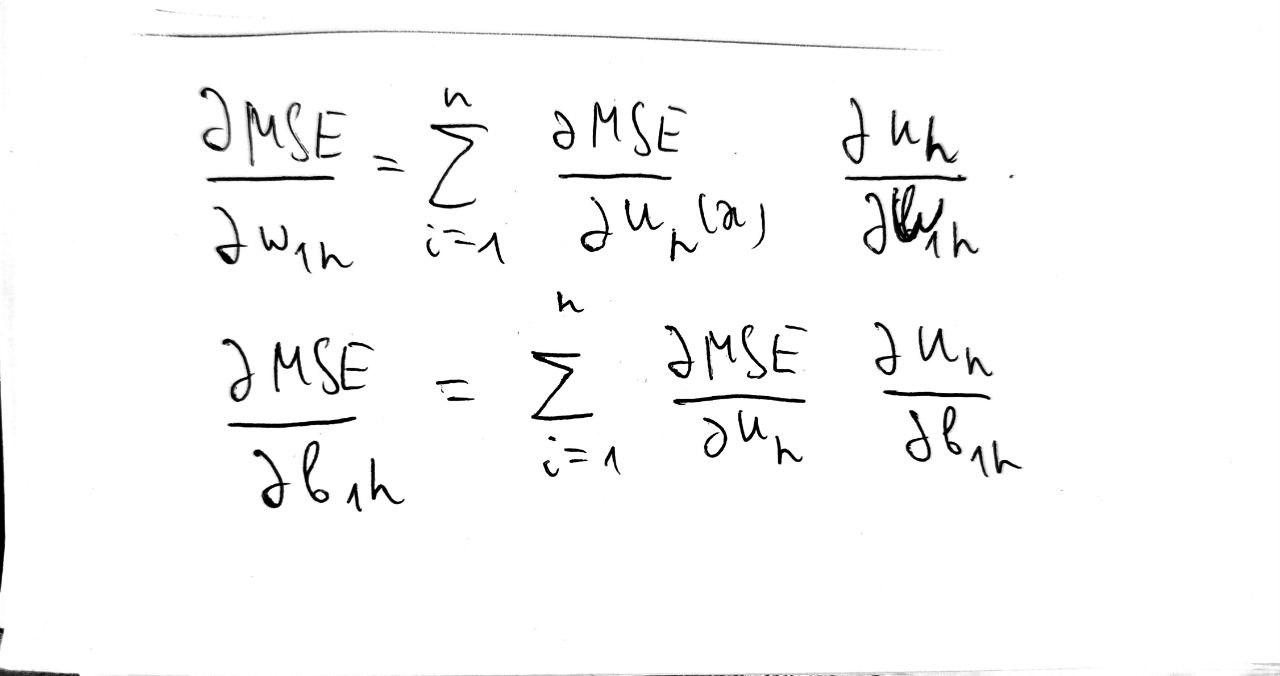 ∂MSE/∂w₁ₕ = Σᵢ₌₁ⁿ ∂MSE/∂uₕ(x) ∂uₕ/∂w₁ₕ .
∂MSE/∂b₁ₕ = Σᵢ₌₁ⁿ ∂MSE/∂uₕ ∂uₕ/∂b₁ₕ